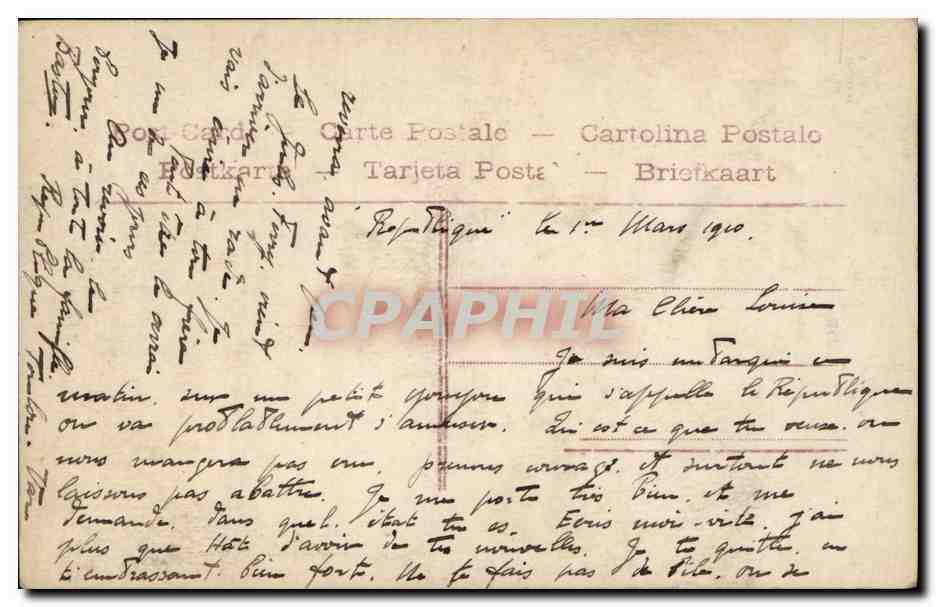 Post-Card Carte Postale — Cartolina Postale
Postkarte — Tarjeta Postal — Briefkaart
République le 1er Mars 1910.
Ma Chère Louise
Je suis embarqué ce
matin, sur un petit youyou qui s'appelle le République
on va probablement s'amuser. Qu'est ce que tu veux. on
nous mangera pas cru, prenons courage, et surtout ne nous
laissons pas abattre. Je me porte très bien, et me
demande, dans quel état tu es. Ecris moi vite, j'ai
plus que hâte d'avoir de tes nouvelles. Je te quitte, en
t'embrassant bien forte. Ne te fais pas de bile, on se
reverra avant
Le Jules Ferry vient
d'arriver en rade. Je
vais écrire à ton frère
Je un peut être le
un de ces jours
au revoir, le
bonjour à toute la famille
République Toulon. Var
CPAPHIL